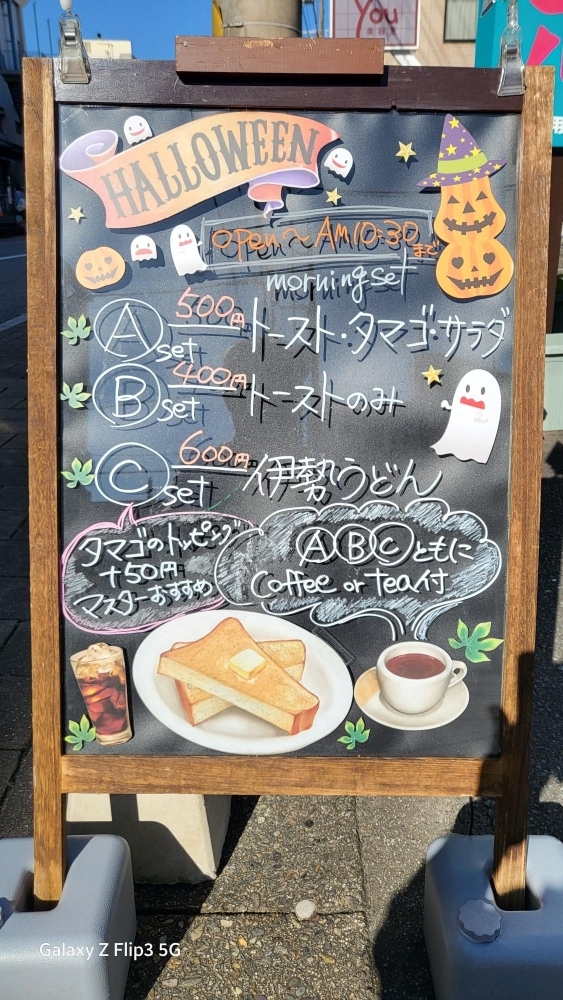 You
HALLOWEEN
open～AM10:30まで
morning set
Ⓐset 500円 トースト・タマゴ・サラダ
Ⓑset 400円 トーストのみ
Ⓒset 600円 伊勢うどん
タマゴのトッピング
+50円
マスターおすすめ
ⒶⒷⒸともに
Coffee or Tea付
Galaxy Z Flip3 5G